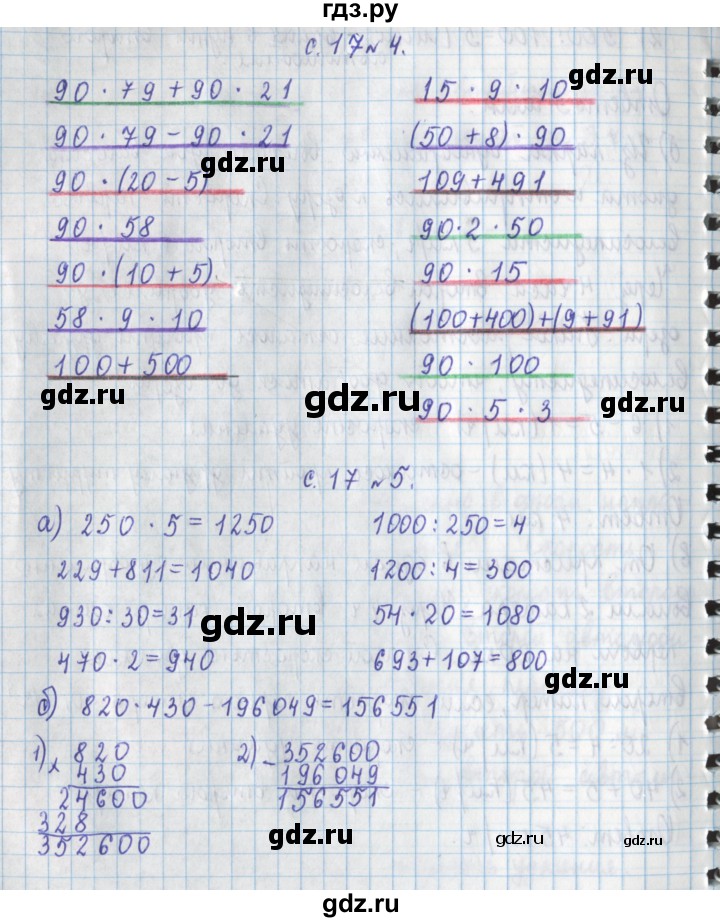 гдз.ру
с. 17 № 4.
90 · 79 + 90 · 21
90 · 79 - 90 · 21
90 · (20 - 5)
90 · 58
90 · (10 + 5)
58 · 9 · 10
100 + 500
15 · 9 · 10
(50 + 8) · 90
109 + 491
90 · 2 · 50
90 · 15
(100+400)+(9+91)
90 · 100
90 · 5 · 3
gdz.ru
gdz.ru
gdz.ru
gdz.ru
gdz.ru
с. 17 № 5.
а) 250 · 5 = 1250
229 + 811 = 1040
930 : 30 = 31
470 · 2 = 940
1000 : 250 = 4
1200 : 4 = 300
54 · 20 = 1080
693 + 107 = 800
gdz.ru
gdz.ru
б) 820 · 430 - 196049 = 156551
1) x 820
430
24600
328
352600
2) - 352600
196049
156551
gdz.ru
gdz.ru
gdz.ru
gdz.ru